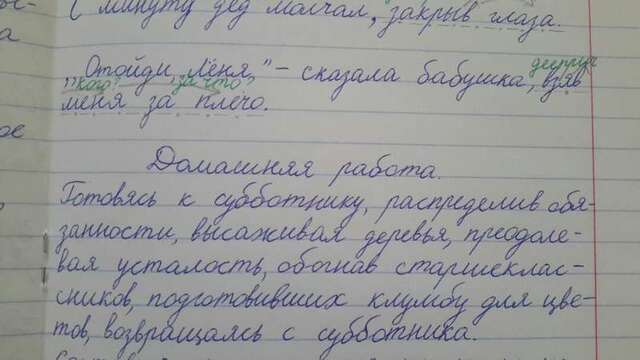 с минуту дед молчал, закрыв глаза.
Отойди, Лёня," – сказала бабушка, взяв
"кого? за что?
меня за плечо.
Домашняя работа.
Готовясь к субботнику, распределив обя-
занности, высаживая деревья, преодоле-
вая усталость, обогнав старшеклас-
сников, подготовивших клумбу для цве-
тов, возвращаясь с субботника.